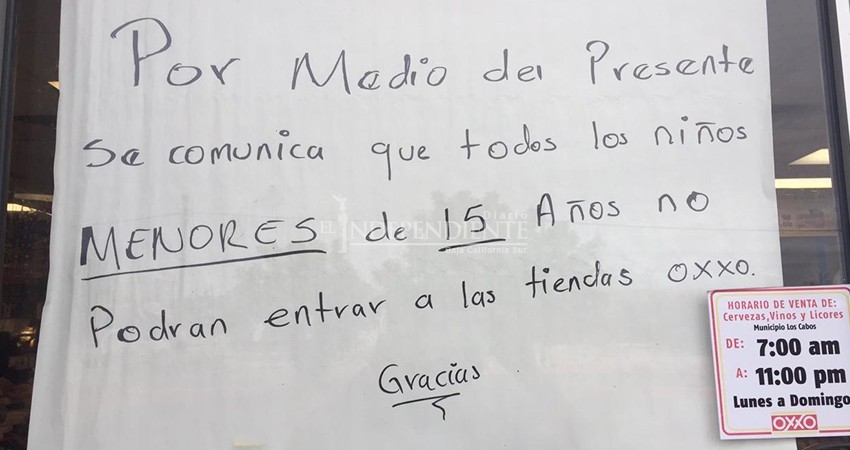 Por Medio del Presente
Se comunica que todos los niños
MENORES de 15 Años no
Podran entrar a las tiendas OXXO.
Gracias
EL INDEPENDIENTE
Diario
Baja California Sur
HORARIO DE VENTA DE:
Cervezas,Vinos y Licores
Municipio Los Cabos
DE: 7:00 am
A: 11:00 pm
Lunes a Domingo
OXXO